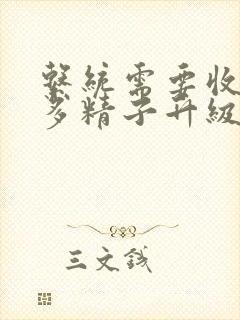 繫統需要收
多精子升級
三文錢